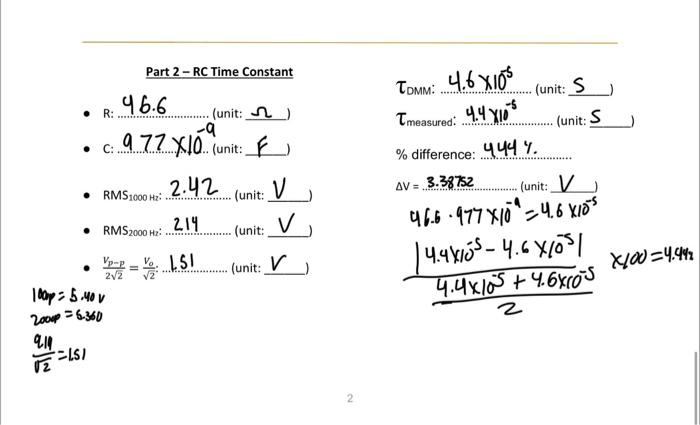 Part 2 – RC Time Constant
• R: 46.6 (unit: Ω)
• C: 9.77 X10^-9 (unit: F)
• RMS1000 Hz: 2.42 (unit: V)
• RMS2000 Hz: 2.14 (unit: V)
• Vp-p/2√2 = Vo/√2: 1.51 (unit: V)
100pp = 5.40 V
200pp = 6.360
2.14/√2 = 1.51
τDMM: 4.6 X10^-5 (unit: S)
τmeasured: 4.4 X10^-5 (unit: S)
% difference: 4.44 %
ΔV = 3.38752 (unit: V)
46.6 · 977 X10^-9 = 4.6 X10^-5
|4.4X10^-5 – 4.6 X10^-5|
4.4X10^-5 + 4.6X10^-5
2
X100 = 4.44%
2